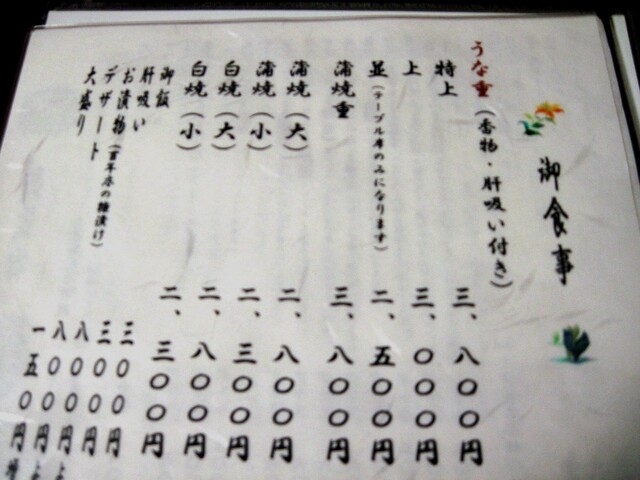 御食事
うな重（香物・肝吸い付き）
特上 三、八〇〇円
上 三、〇〇〇円
並（テーブル席のみになります） 二、五〇〇円
蒲焼重 三、八〇〇円
蒲焼（大） 二、八〇〇円
蒲焼（小） 二、三〇〇円
白焼（大） 二、八〇〇円
白焼（小） 二、三〇〇円
御飯 三〇〇円
肝吸い 三〇〇円
お漬物（百年床の糠漬け） 八〇〇円
デザート 八〇〇円
大盛り 一五〇円増